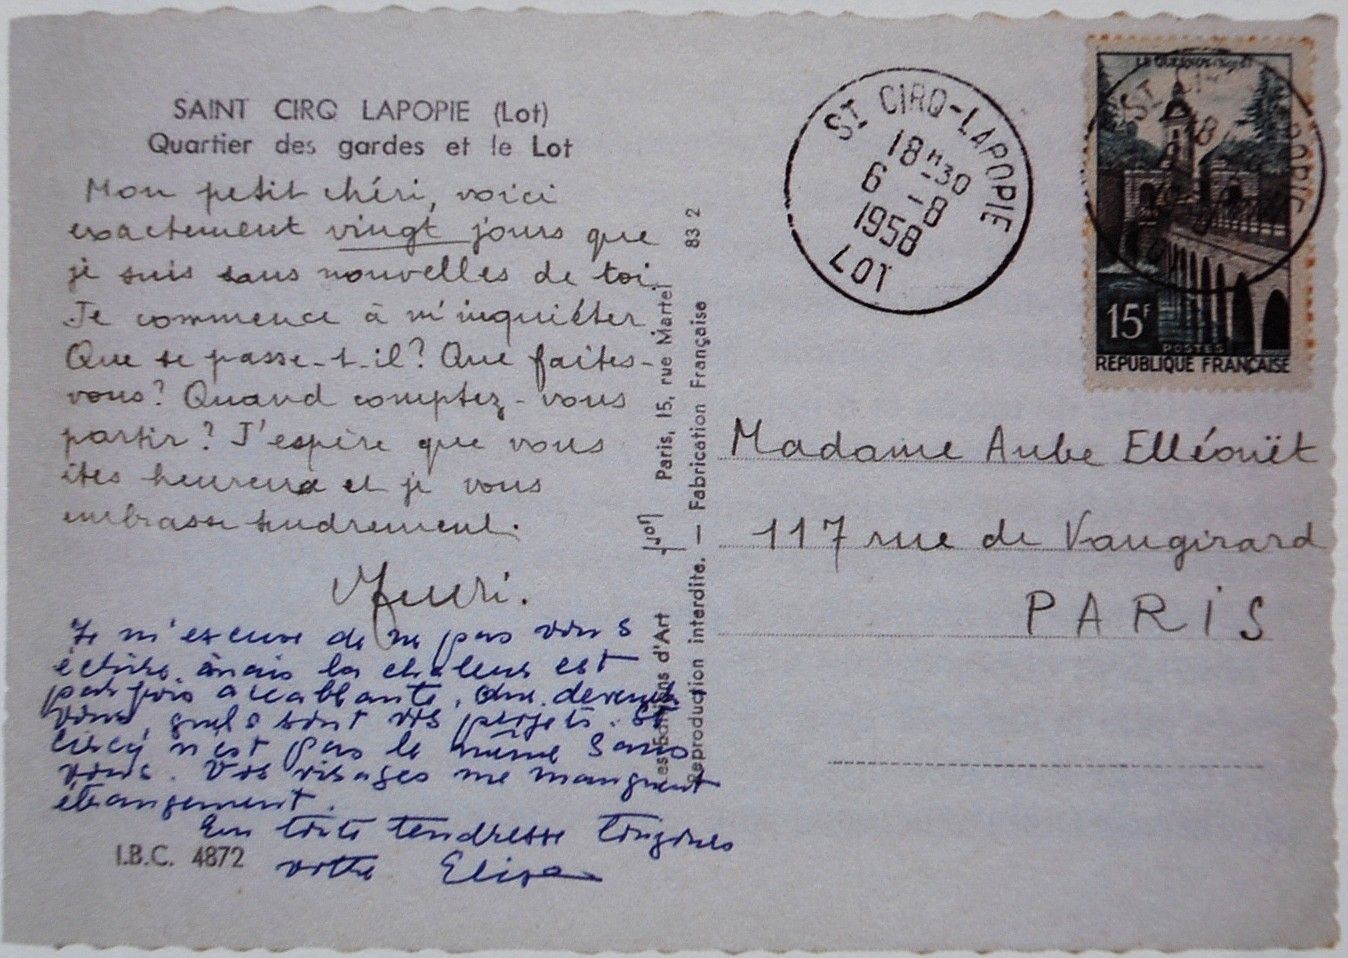 SAINT CIRQ LAPOPIE (Lot)
Quartier des gardes et le Lot
Mon petit chéri, voici
exactement vingt jours que
je suis sans nouvelles de toi.
Je commence à m'inquiéter
Que se passe-t-il? Que faites-
vous? Quand comptez-vous
partir? J'espère que vous
êtes heureux et je vous
embrasse tendrement.
Je m'excuse de ne pas vous
écrire, mais la chaleur est
parfois accablante. Que devenez
vous, quels sont vos projets. St
Circq n'est pas le même sans
vous. Vos visages me manquent
étrangement.
En toute tendresse toujours
votre Elisa
I.B.C. 4872
Les Editions d'Art "Jof" Paris, 15, rue Martel 83 2
Reproduction interdite. — Fabrication Française
ST CIRQ-LAPOPIE
18H30
6-8
1958
LOT
15F
POSTES
REPUBLIQUE FRANÇAISE
Madame Aube Elléouët
117 rue de Vaugirard
PARIS